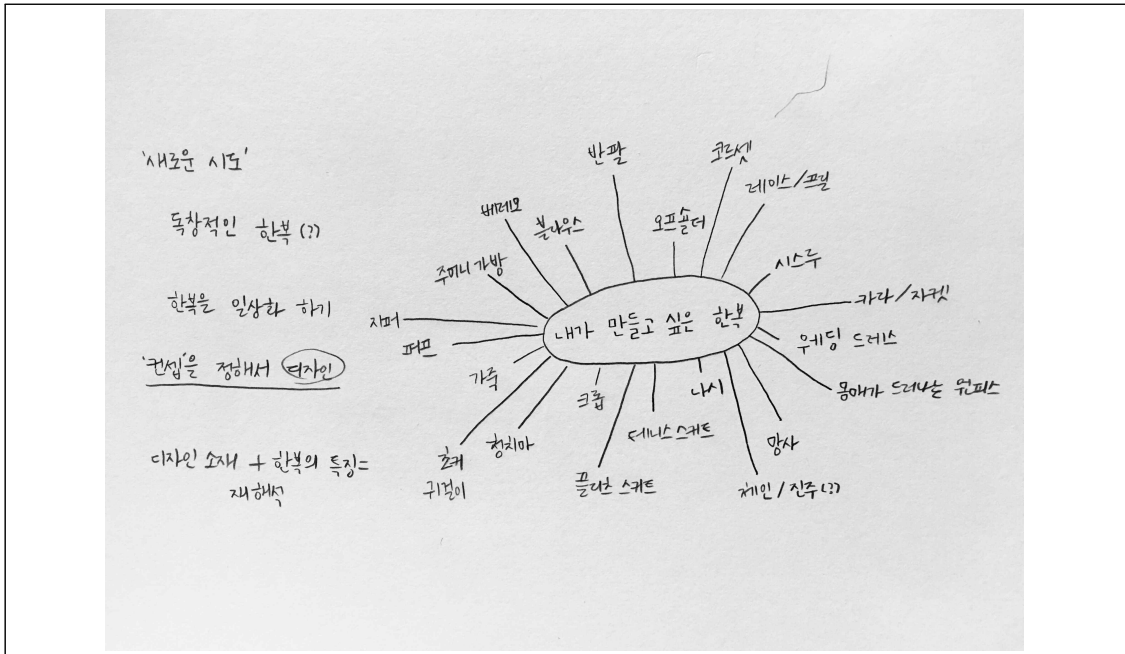 '새로운 시도'
독창적인 한복(??)
한복을 일상화 하기
'컨셉'을 정해서 디자인
디자인 소재 + 한복의 특징=
재해석
내가 만들고 싶은 한복
반팔
코르셋
레이스/프릴
오프숄더
시스루
카라/자켓
웨딩 드레스
몸매가 드러나는 원피스
망사
체인/진주(??)
나시
테니스 스커트
플리츠 스커트
크롭
청치마
초커
귀걸이
가죽
퍼프
지퍼
주머니 가방
베레모
블라우스